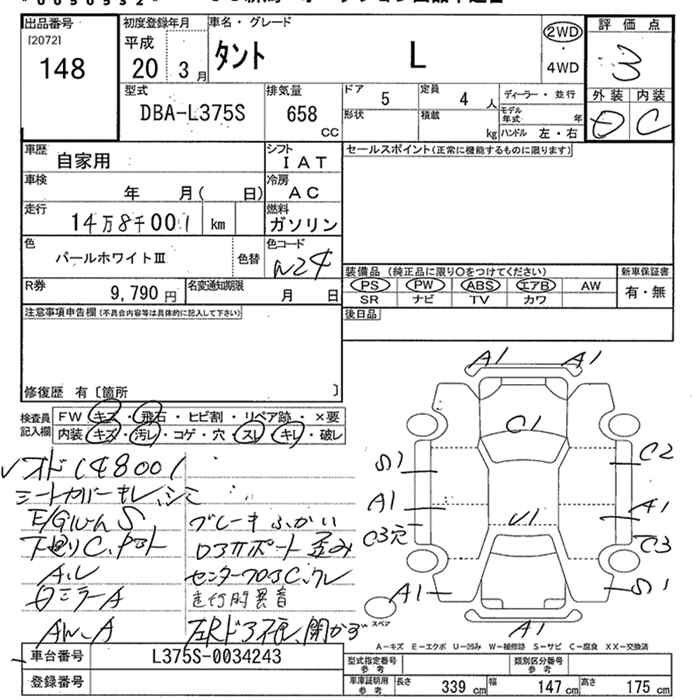 出品番号
[2072]
148
初度登録年月
平成
20 3月
車名・グレード
タント L
2WD
・
4WD
評価点
3
外装 内装
D C
型式
DBA-L375S
排気量
658 CC
ドア 5
定員 4 人
形状
積載 kg
ディーラー・並行
モデル年式 年
ハンドル 左・右
車歴 自家用
シフト IAT
セールスポイント(正常に機能するものに限ります)
車検 年 月( 日)
冷房 AC
走行 14万8千001 km
燃料 ガソリン
色 パールホワイトⅢ
色替
色コード W24
R券 9,790 円
名変通知期限 月 日
装備品 (純正品に限り○をつけてください)
PS PW ABS エアB AW
SR ナビ TV カワ
新車保証書
有・無
後日品
注意事項申告欄(不具合内容等は具体的に記入して下さい)
修復歴 有 〔箇所 〕
検査員記入欄
FW キズ・飛石・ヒビ割・リペア跡・×要
内装 キズ・汚レ・コゲ・穴・スレ・キレ・破レ
オド148001
シートカバーキレ、シミ
ブレーキふかい
下廻りC、
センターフロアC、
走行時異音
ミラーA
A1 A1
C1
S1 C2
A1 A1
C3穴 C3
U1
A1 S1
A1
スペア
A-キズ E-エクボ U-凹み W-補修跡 S-サビ C-腐食 XX-交換済
車台番号 L375S-0034243
登録番号
型式指定番号 参考
類別区分番号 参考
車庫証明用 参考
長さ 339 cm
幅 147 cm
高さ 175 cm